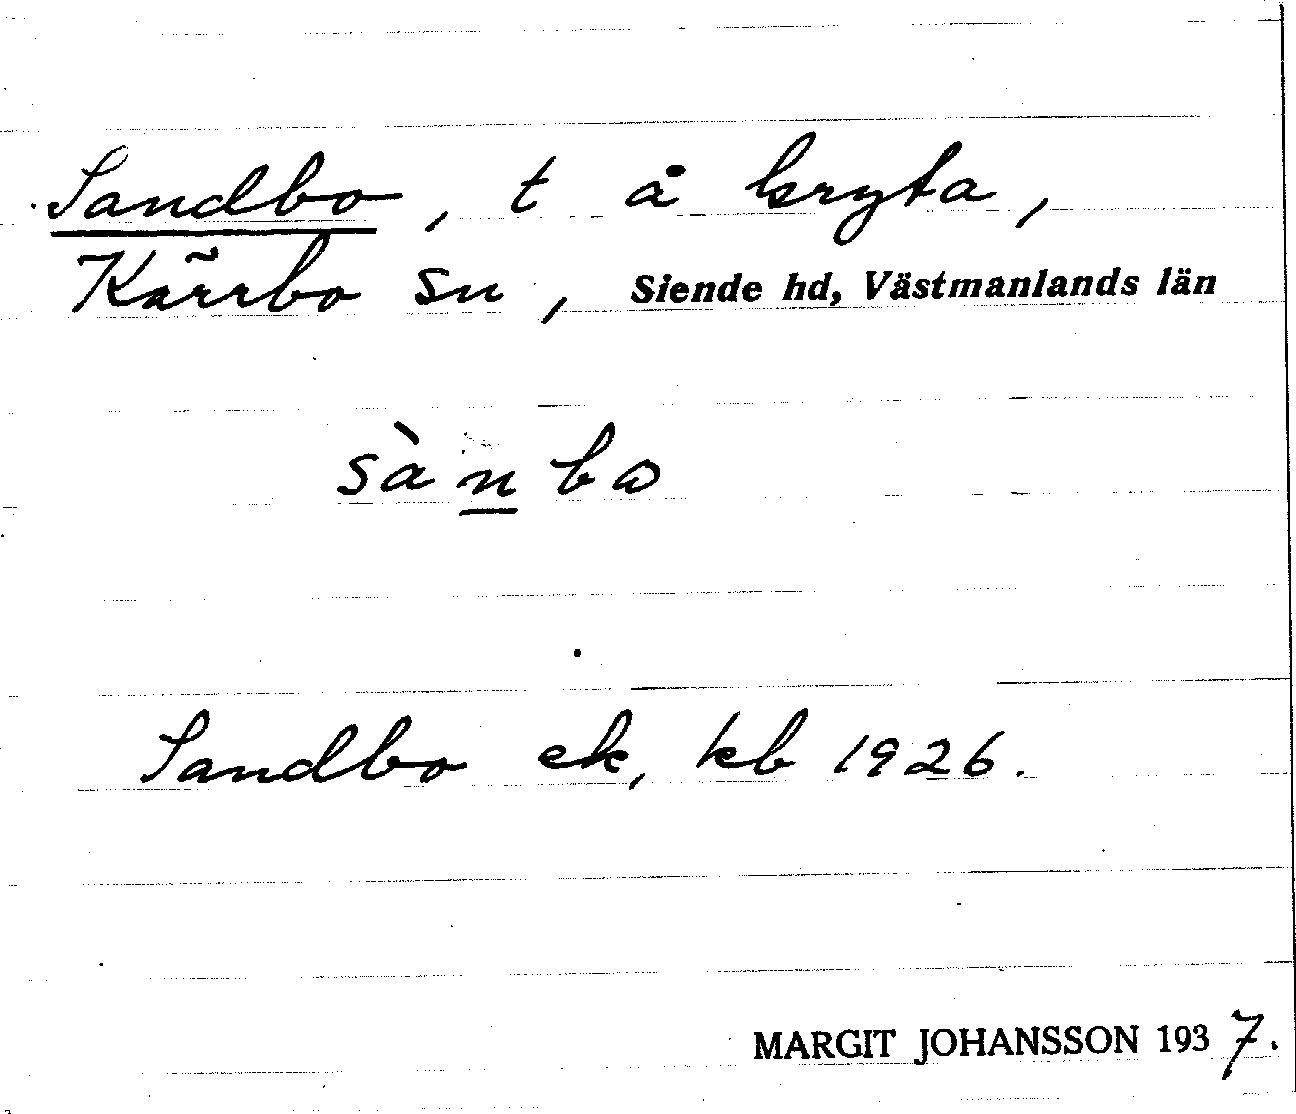 Sandbo, t å kryta,
Kärrbo sn, Siende hd, Västmanlands län
sànbɷ
Sandbo ek, kb 1926.
MARGIT JOHANSSON 1937.